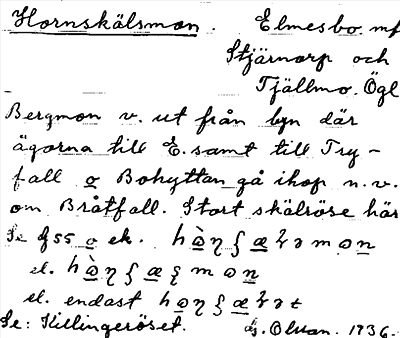 Hornskälsmon. Elmesbo. mf
Stjärnorp och
Tjällmo. Ögl
Bergmon v. ut från byn där
ägorna till E. samt till Try-
fall o Bohyttan gå ihop n.v.
om Bråtfall. Stort skälröse här
Se f55 o ek.
el.
el. endast
Se: Killingeröset. Olsan. 1936.